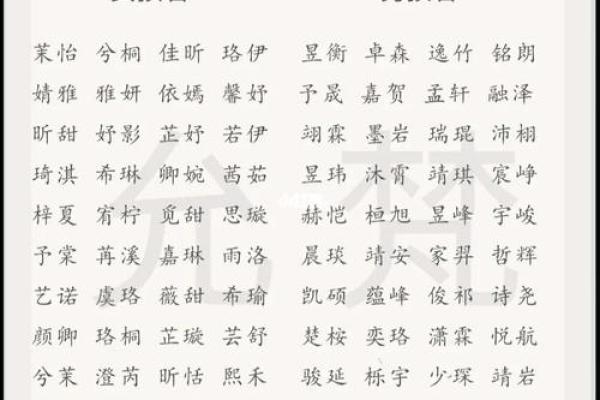 茉怡 兮桐 佳昕 珞伊 昱衡 卓森 逸竹 铭朗
婧雅 雅妍 依嫣 馨妤 予晟 嘉贺 孟轩 融泽
昕甜 妤影 芷妤 若伊 翊霖 墨岩 瑞琨 沛栩
琦淇 希琳 卿婉 茜茹 昱玮 沐霄 靖琪 宸峥
梓夏 宥柠 觅甜 思璇 赫恺 桓旭 昱峰 宇峻
予棠 苒溪 嘉琳 雨洛 晨琰 靖安 家羿 哲辉
艺诺 虞珞 薇甜 希瑜 凯硕 蕴峰 俊祁 诗尧
颜卿 珞桐 芷璇 芸舒 楚桉 奕珞 潇霖 悦航
兮茉 澄芮 昕恬 熙禾 骏延 栎宇 少琛 靖岩
允梵